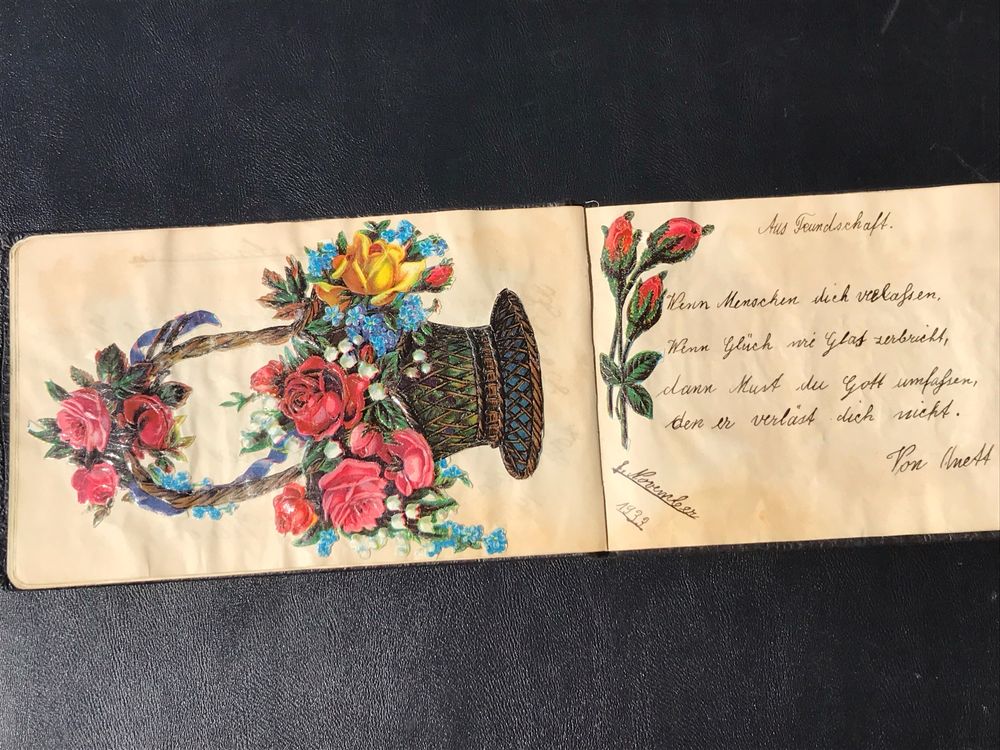 Aus Feundschaft.
Wenn Menschen dich verlaßen,
Wenn Glück wie Glas zerbricht,
dann Must du Gott umfaßen,
den er verläst dich nicht.
Von
November
1933